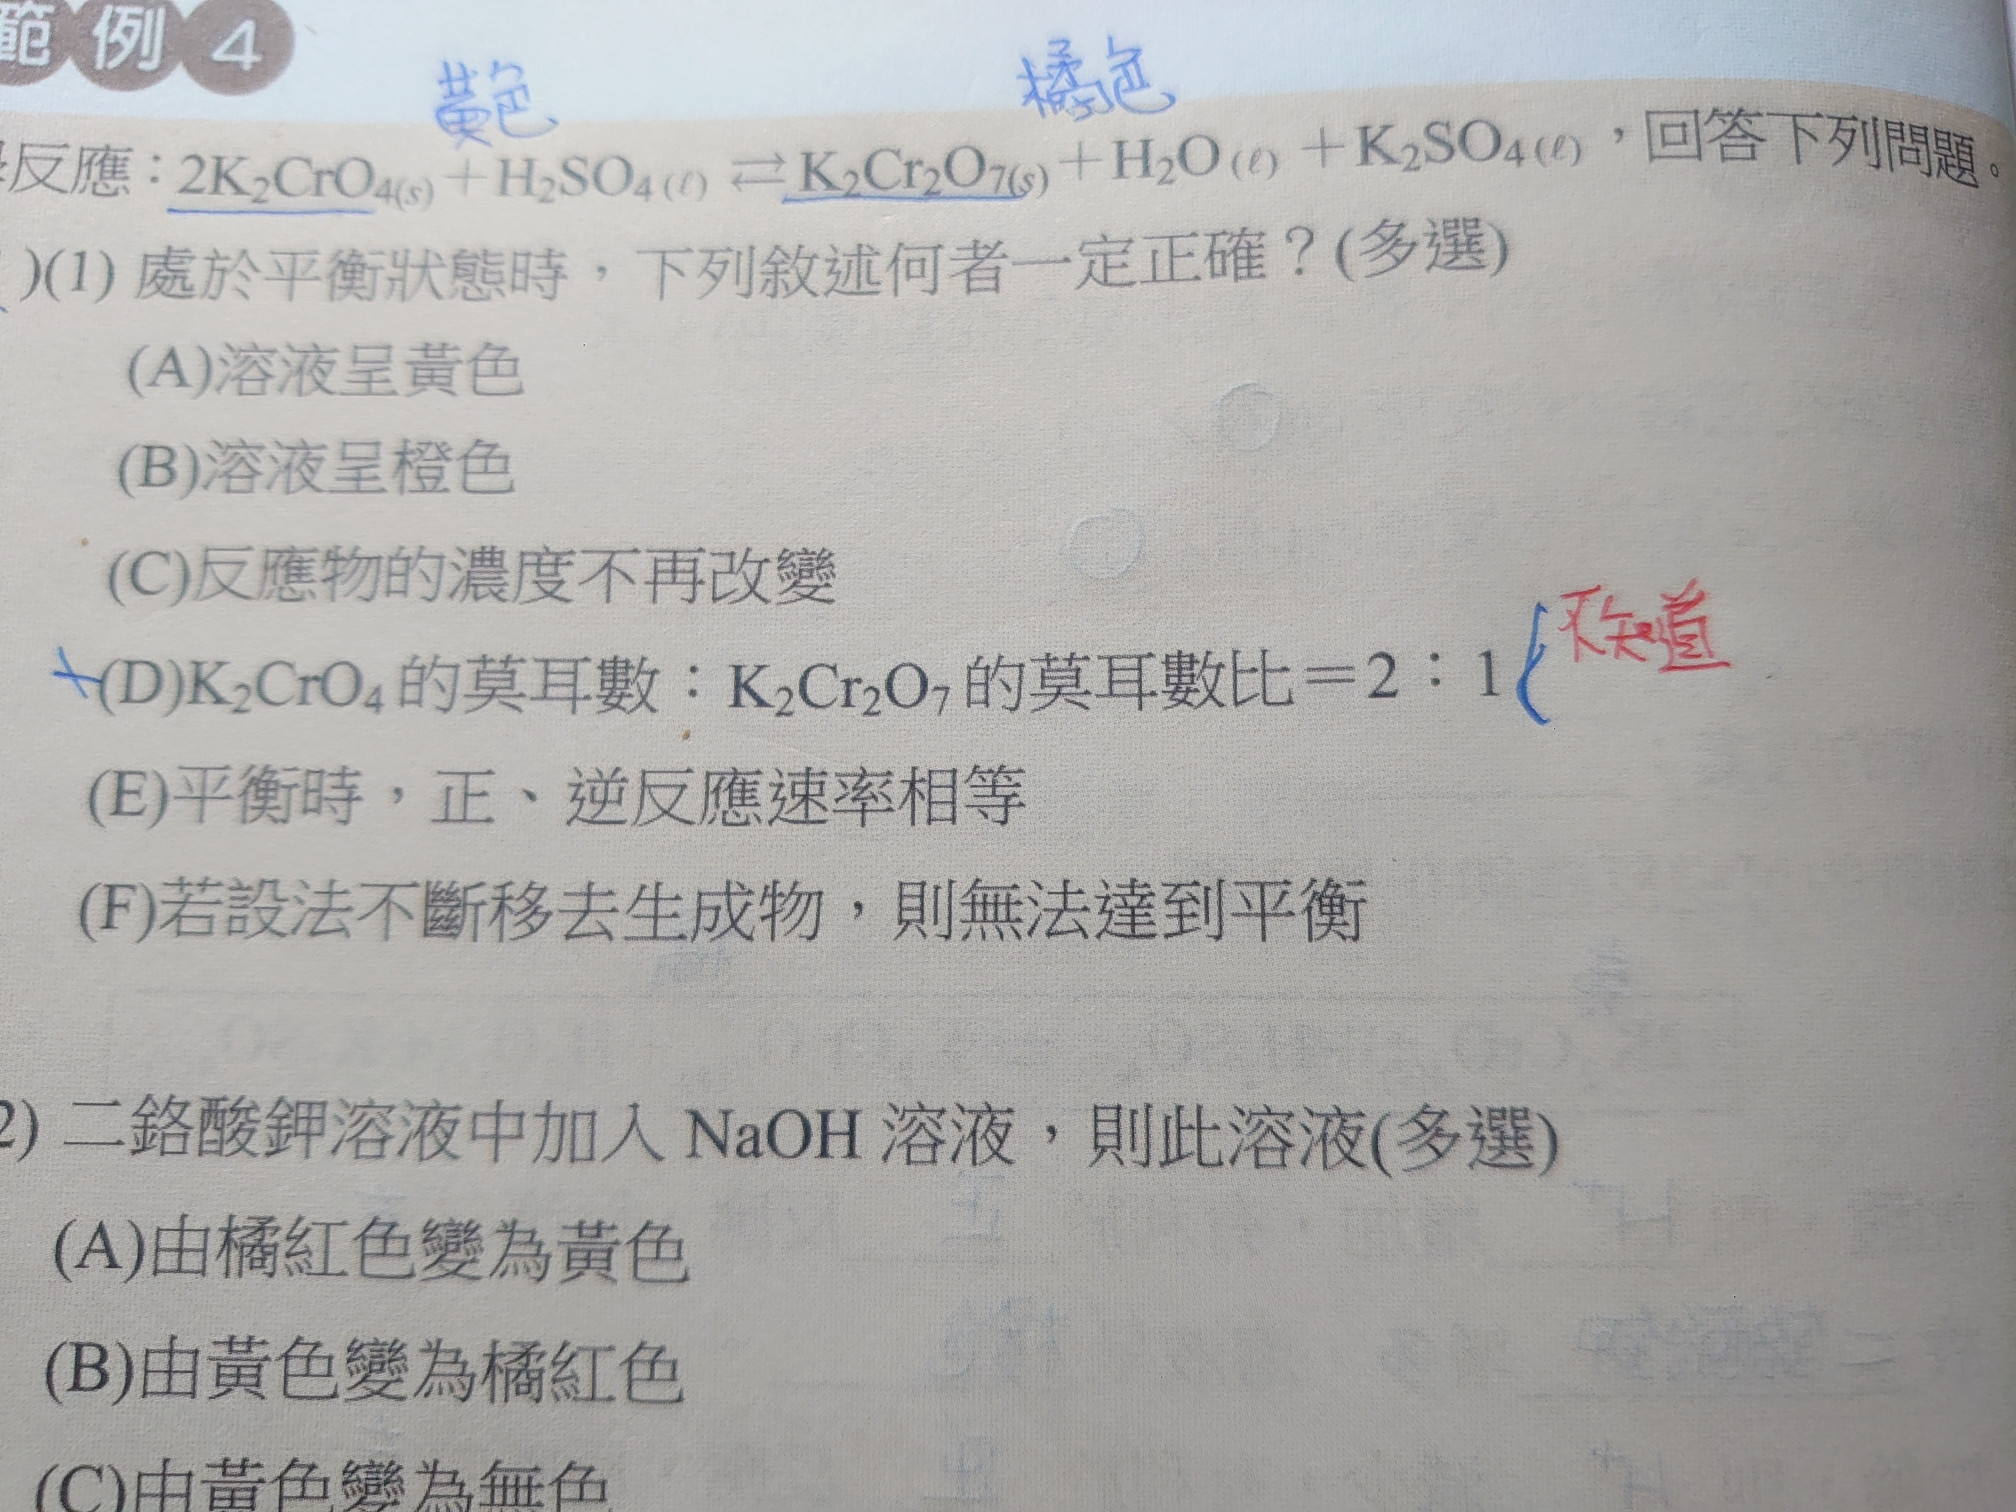 範例4
黃色 橘色
反應：2K₂CrO₄(s)+H₂SO₄(ℓ) ⇄ K₂Cr₂O₇(s)+H₂O(ℓ)+K₂SO₄(ℓ)，回答下列問題。
)(1) 處於平衡狀態時，下列敘述何者一定正確？(多選)
(A)溶液呈黃色
(B)溶液呈橙色
(C)反應物的濃度不再改變
不知道
(D)K₂CrO₄的莫耳數：K₂Cr₂O₇的莫耳數比＝2：1
(E)平衡時，正、逆反應速率相等
(F)若設法不斷移去生成物，則無法達到平衡
2) 二鉻酸鉀溶液中加入 NaOH 溶液，則此溶液(多選)
(A)由橘紅色變為黃色
(B)由黃色變為橘紅色
(C)由黃色變為無色